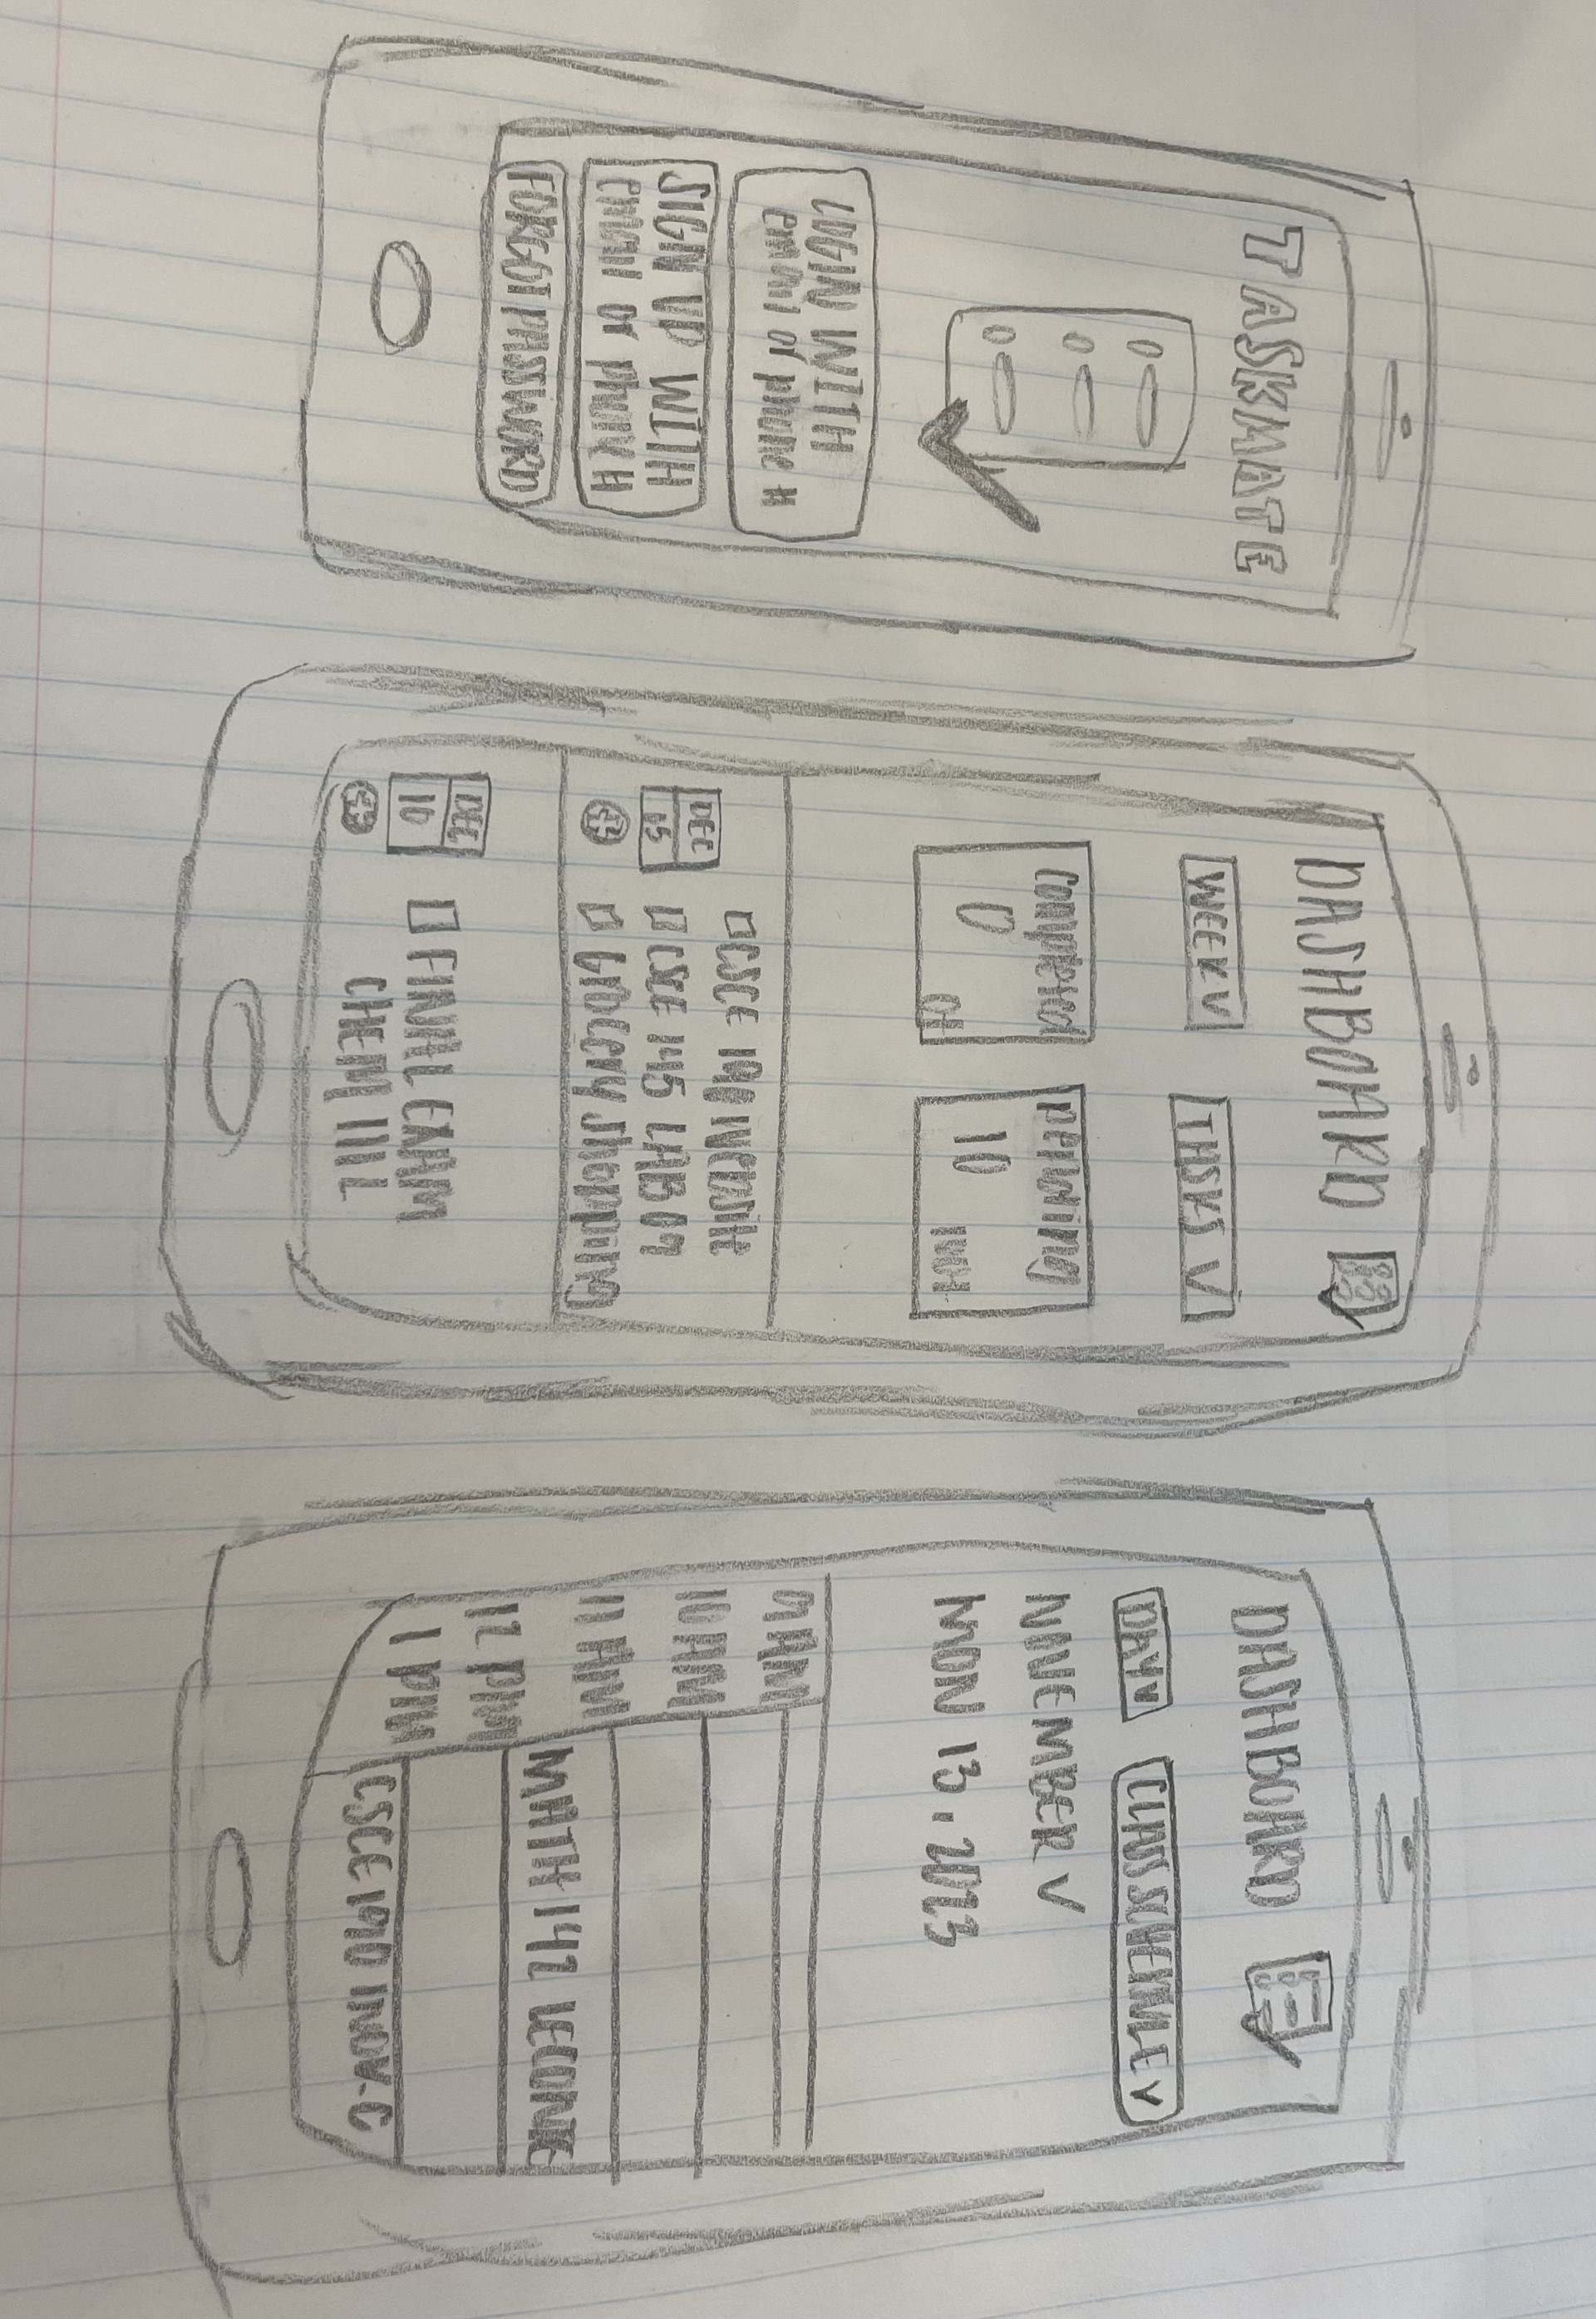 TASKMATE
LOGIN WITH
email or phone #
SIGN UP WITH
email or phone #
FORGOT PASSWORD
DASHBOARD
WEEK V TASKS V
Completed pending
0 10
DEC CSCE
CSCE 145 LAB 09
Grocery shopping
DEC
10 FINAL EXAM
CHEM 111L
DASHBOARD
DAY V
NOVEMBER V
MON 13, 2023
9AM
10AM
11AM
MATH 142 LECTURE
12 PM
1 PM
CSCE 190